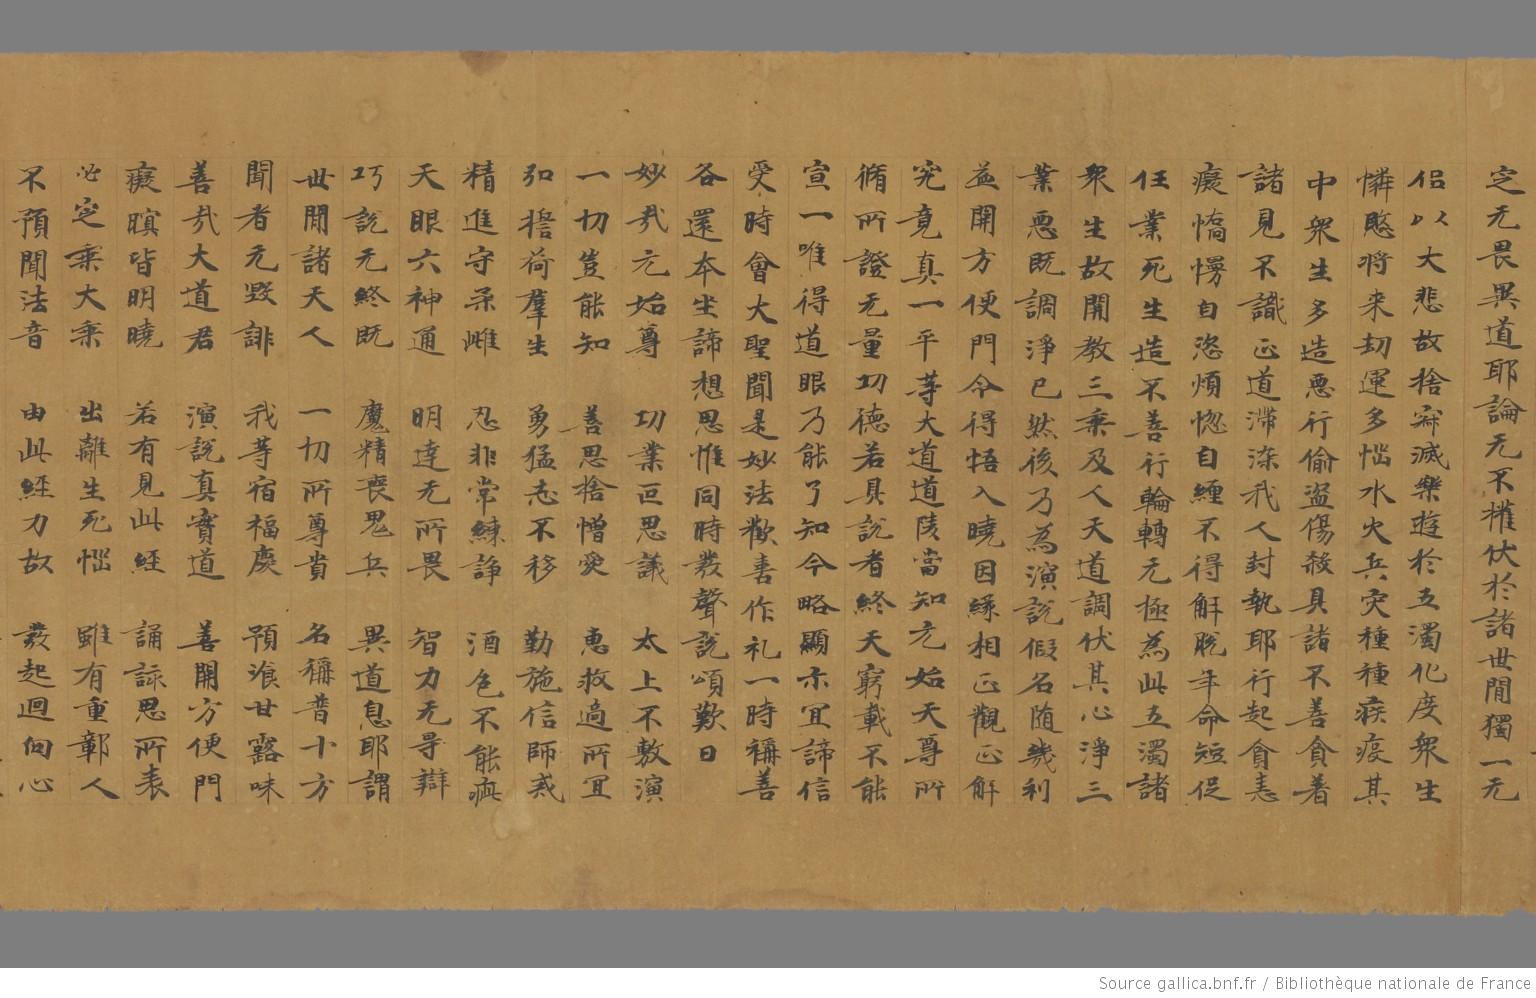 定无畏異道耶論无不摧伏於諸世間獨一无
侣以大悲故捨寂滅樂遊於五濁化度衆生
憐愍将来劫運多惱水火兵灾種種疾疫其
中衆生多造悪行偷盗傷殺具諸不善貪着
諸見不識正道滯染我人封執耶行起貪恚
癡憍慢自恣煩惚自纏不得解脱年命短促
任業死生造不善行輪轉无極為此五濁諸
衆生故開教三乘及人天道調伏其心淨三
業悪既調淨已然後乃為演説假名随幾利
益開方便門令得悟入曉因縁相正觀正解
究竟真一平等大道道陵當知元始天尊所
脩所證无量功德若具説者終天窮載不能
宣一唯得道眼乃能了知今略顯示宜諦信
受時會大聖聞是妙法歡喜作礼一時稱善
各還本坐諦想思惟同時發聲説頌歎曰
妙㢤元始尊 功業叵思議 太上不敷演
一切豈能知 善思捨憎愛 恵救過所宜
弘捨荷羣生 勇猛志不移 勤施信師戒
精進守柔雌 忍非常練諍 酒色不能痴
天眼六神通 明達无所畏 智力无㝵辯
巧説无終既 魔精喪鬼兵 異道息耶謂
世間諸天人 一切所尊貴 名稱普十方
聞者无毀誹 我等宿福慶 預飡甘露味
善㢤大道君 演説真實道 善開方便門
癡瞑皆明曉 若有見此經 誦詠思所表
必定乘大乘 出離生死惱 雖有重鄣人
不預聞法音 由此經力故 發起迴向心
Source gallica.bnf.fr / Bibliothèque nationale de France